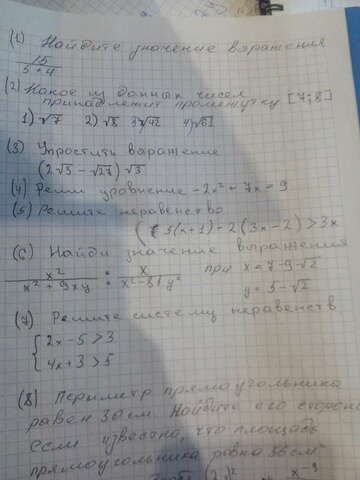 (1) Найдите значение выражения
15
5+4
(2) Какое из данных чисел
принадлежит промежутку [7;8]
1) √7 2) √8 3) √42 4) √61
(3) Упростить выражение
(2√3 - √27) √3
(4) Реши уровнение -2x² - 7x = 9
(5) Решите неравенство
3(x+1) - 2(3x-2) > 3x
(6) Найди значение выражения
x² / x² + 9xy : x / x² - 81y² при x = 7-9√2
y = 3-√2
(7) Решите систему неравенств
2x - 5 > 3
4x + 3 > 5
(8) Периметр прямоугольника
равен 30 см. Найдите его стороны
если известно, что площадь
прямоугольника равна 56 см²